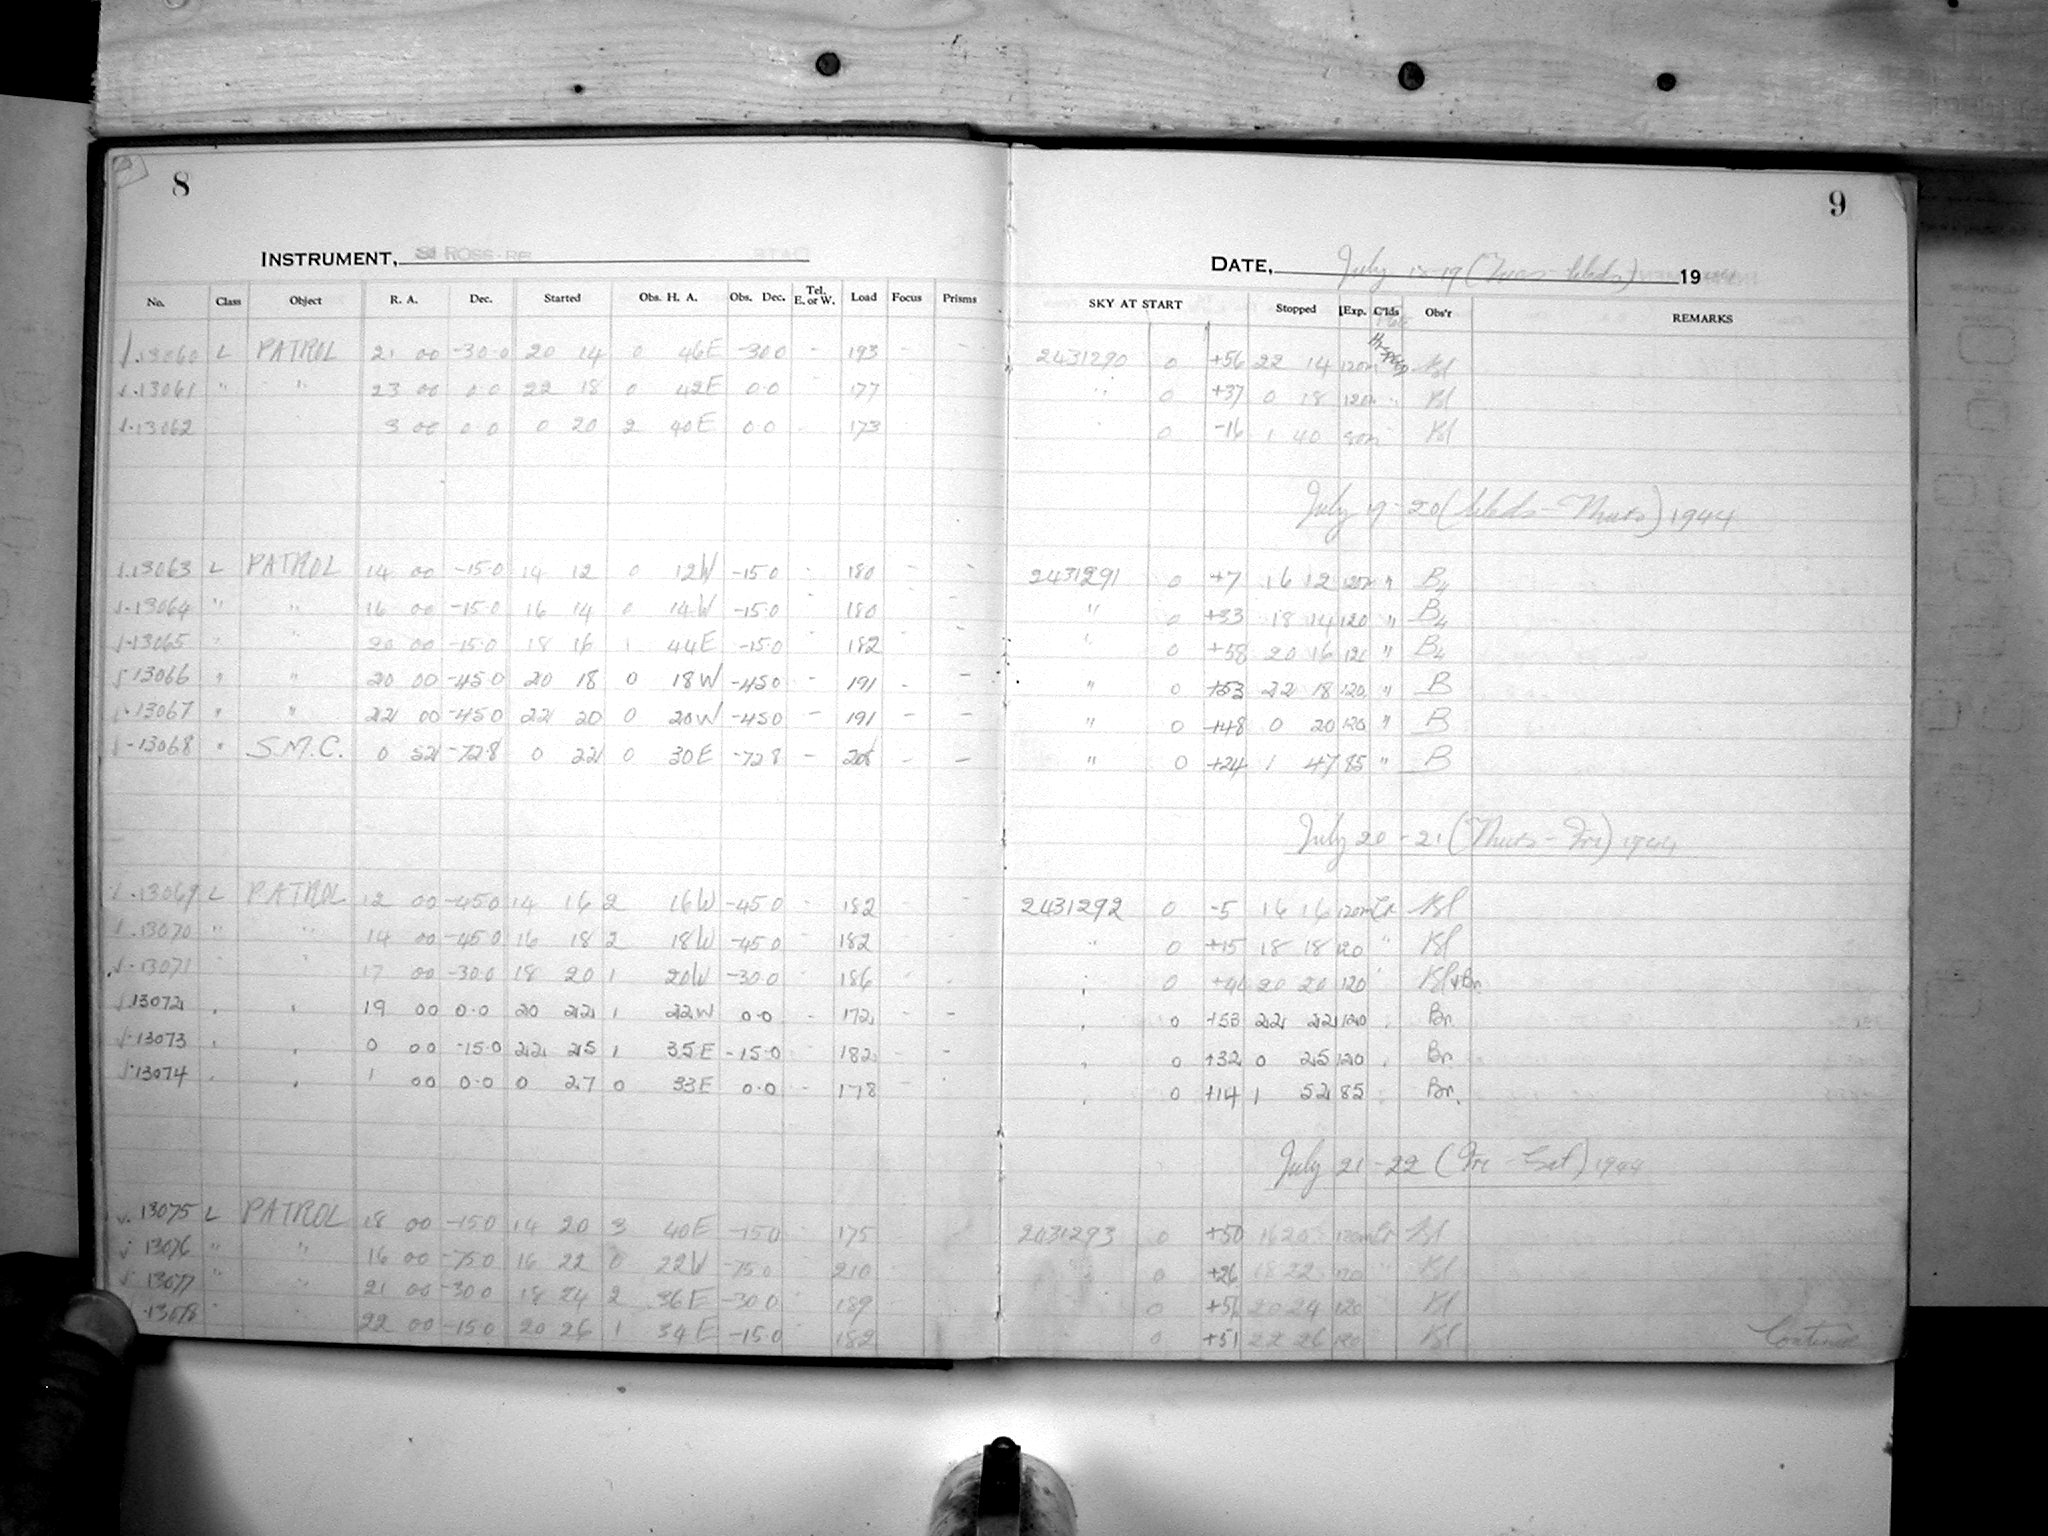 8
9
INSTRUMENT,
DATE, July 18-19 (Tues-Weds) 19
No. Class Object R. A. Dec. Started Obs. H. A. Obs. Dec. Tel. E. or W. Load Focus Prisms SKY AT START Stopped Exp. C'lds Obs'r REMARKS
13060 L PATROL 21 00 -30.0 20 14 0 46E -30.0 - 193 - - 2431290 0 +56 22 14 120m Bl
13061 " " 23 00 0.0 22 18 0 42E 0.0 177 " 0 +37 0 18 120 " Bl
13062 3 00 0.0 0 20 2 40E 0.0 173 0 -16 1 40 80m Bl
July 19-20 (Weds-Thurs) 1944
13063 L PATROL 14 00 -15.0 14 12 0 12W -15.0 - 180 - - 2431291 0 +7 16 12 120m " B4
13064 " " 16 00 -15.0 16 14 0 14W -15.0 180 - " 0 +33 18 14 120 " B4
13065 " " 20 00 -15.0 18 16 1 44E -15.0 - 182 - " 0 +58 20 16 120 " B4
13066 " " 20 00 -45.0 20 18 0 18W -45.0 - 191 - - " 0 +53 22 18 120 " B
13067 " " 22 00 -45.0 22 20 0 20W -45.0 - 191 - - " 0 +48 0 20 120 " B
13068 " S.M.C. 0 52 -72.8 0 22 0 30E -72.8 - - - " 0 +24 1 47 85 " B
July 20-21 (Thurs-Fri) 1944
13069 L PATROL 12 00 -45.0 14 16 2 16W -45.0 - 182 - - 2431292 0 -5 16 16 120m Cr Bl
13070 " " 14 00 -45.0 16 18 2 18W -45.0 - 182 " 0 +15 18 18 120 " Bl
13071 " " 17 00 -30.0 18 20 1 20W -30.0 186 " 0 20 20 120 " Bl+Bn
13072 " " 19 00 0.0 20 22 1 22W 0.0 - 172 - - " 0 +53 22 22 120 " Bn
13073 " " 0 00 -15.0 22 25 1 35E -15.0 182 - - " 0 +32 0 25 120 " Bn
13074 " " 1 00 0.0 0 27 0 33E 0.0 - 178 " 0 +14 1 52 85 " Bn.
July 21-22 (Fri-Sat) 1944
13075 L PATROL 18 00 -15.0 14 20 3 40E -15.0 175 2431293 0 +50 16 20 120m Cr Bl
13076 " " 16 00 -75.0 16 22 0 22W -75.0 210 0 +26 18 22 120 " Bl
13077 " " 21 00 -30.0 18 24 2 36E -30.0 189 0 20 24 120 Bl
13078 22 00 -15.0 20 26 1 34E -15.0 182 0 +51 22 26 120 Bl